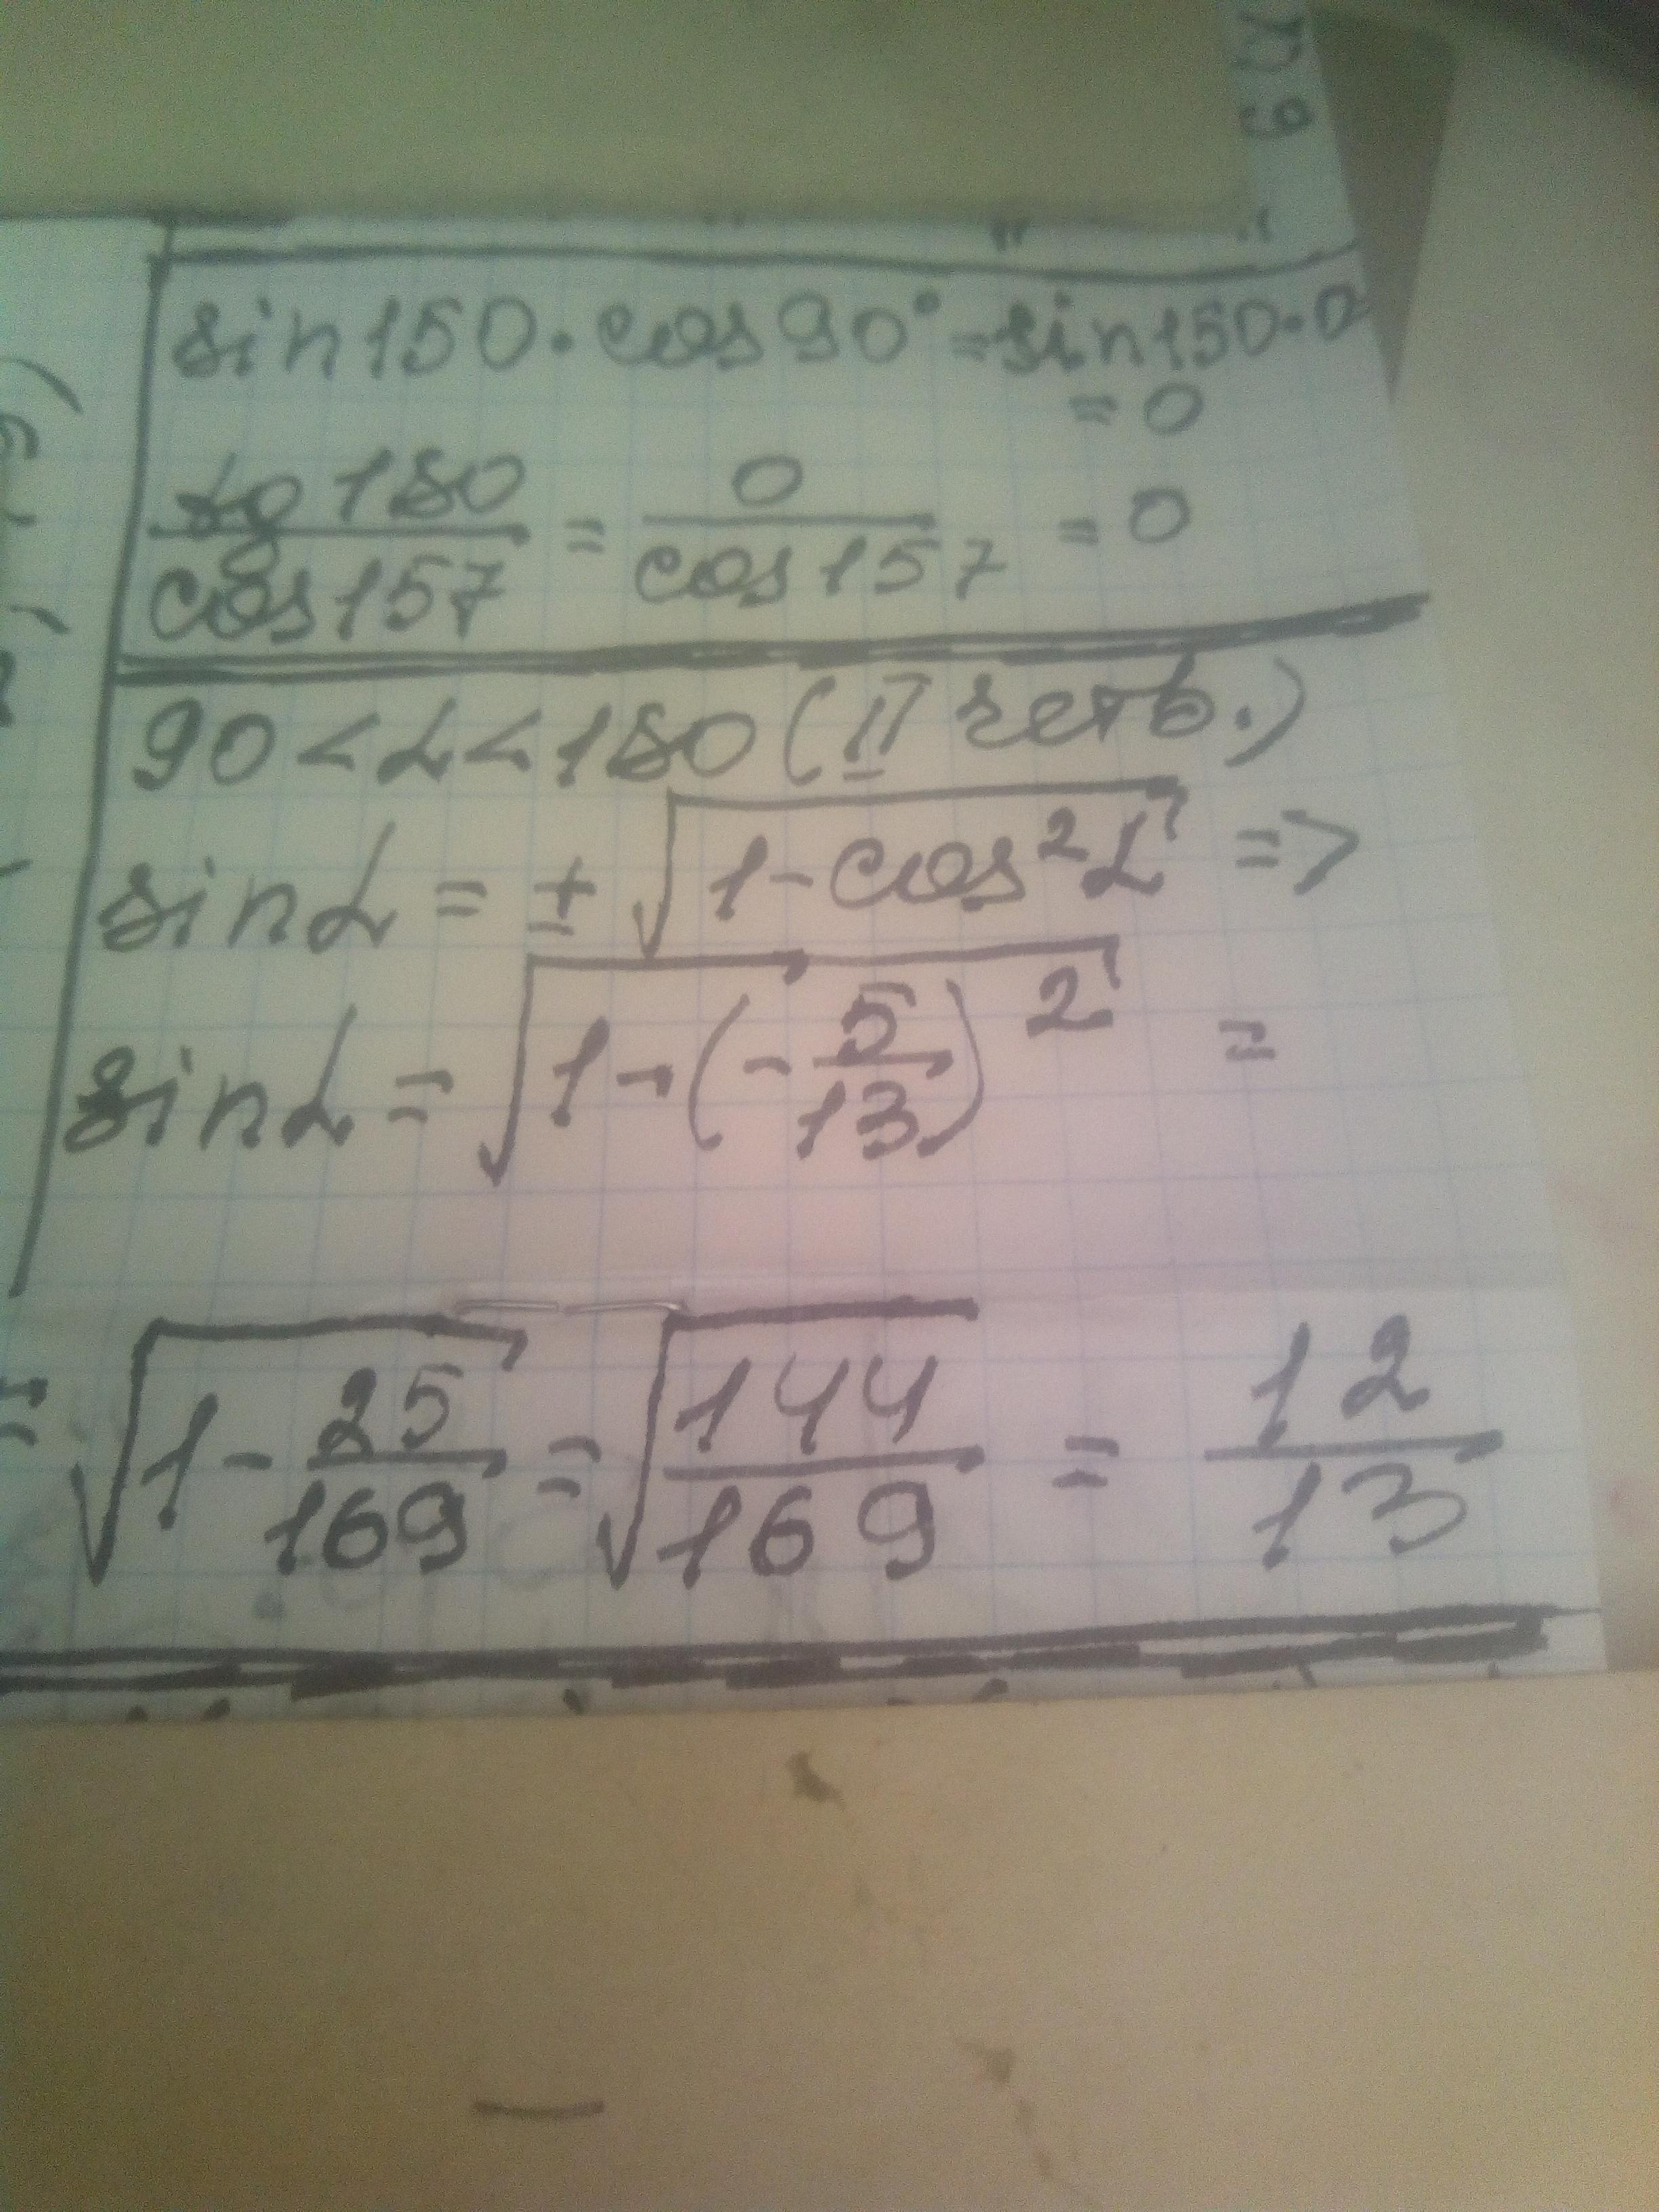 sin150·cos90°=sin150·0
=0
tg180/cos157 = 0/cos157 = 0
90<α<180 (II четв.)
sinα = ±√(1-cos²α) =>
sinα = √(1-(-5/13)²) =
= √(1-25/169) = √(144/169) = 12/13